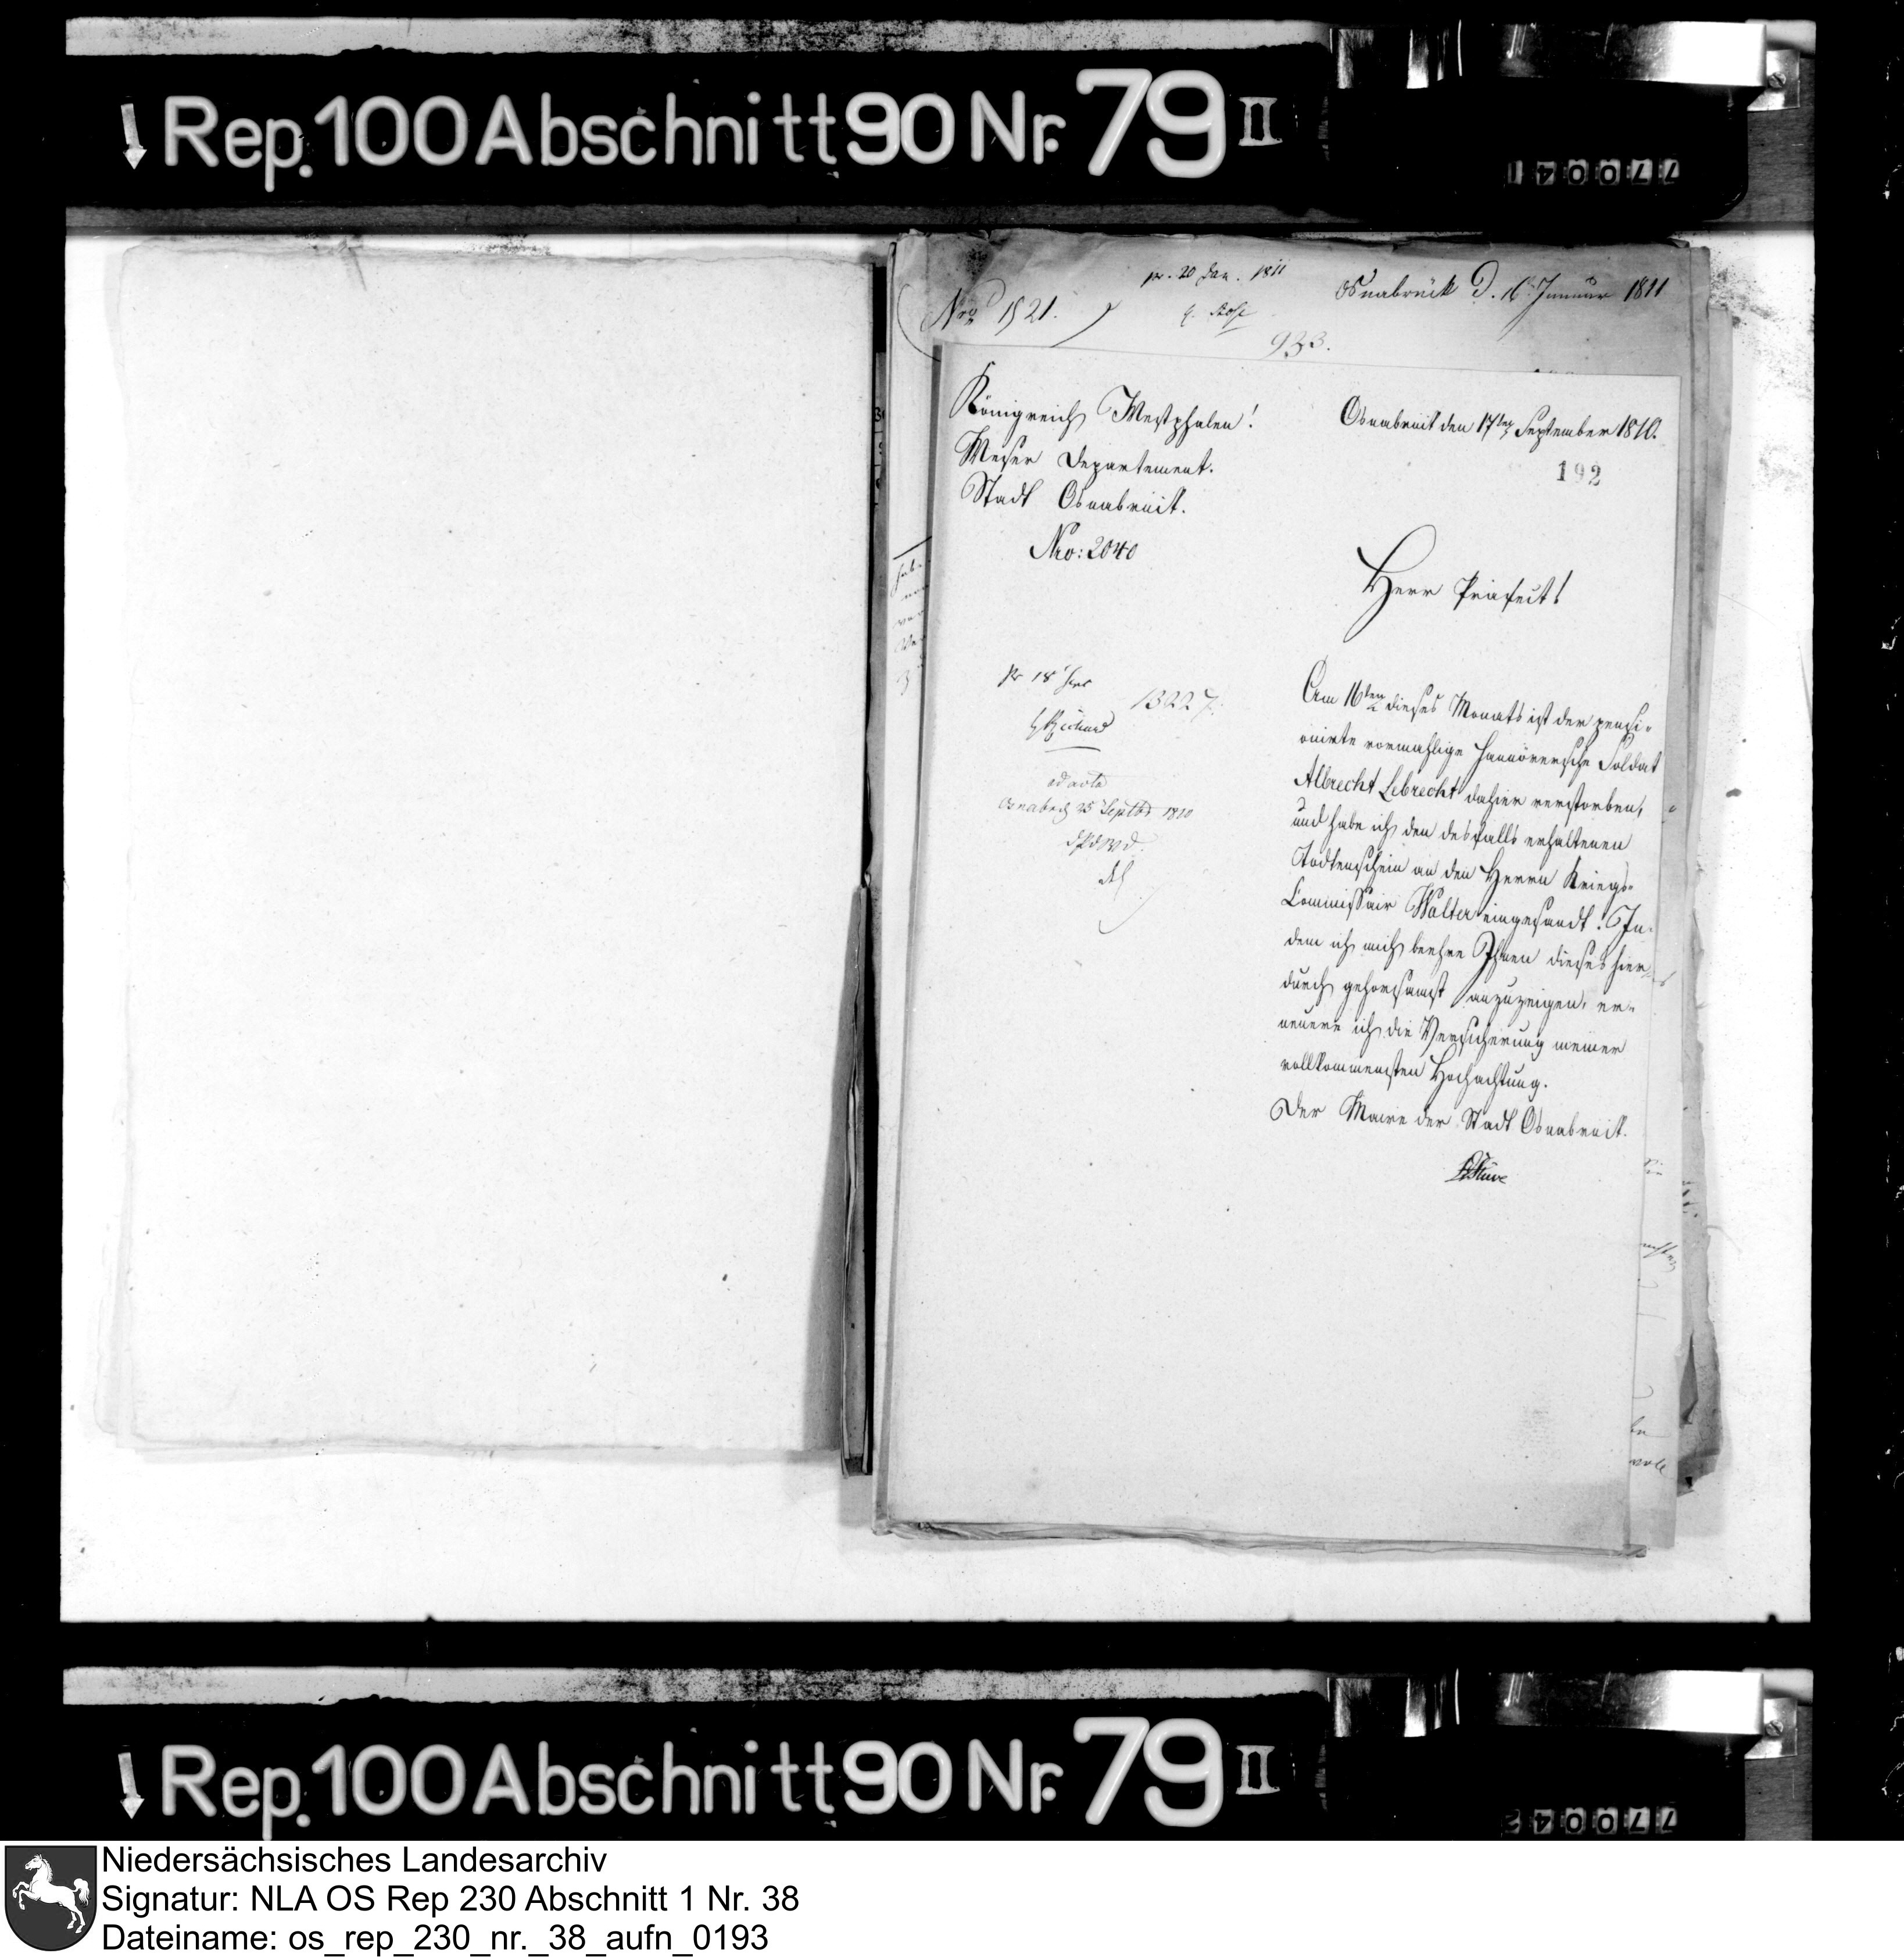 Rep. 100 Abschnitt 90 Nr. 79 II
770041
Nro 1521.
pr. 20 Jan. 1811
Osnabrück d. 16 Januar 1811
933.
Königreich Westphalen!
Weser Departement.
Stadt Osnabrück.
Nro: 2040
Osnabrück den 17ten September 1810.
192
Herr Präfect!
pr 18 Sept
13227.
ad acta
Osnabrück 25 Septbr 1810
Am 16ten dieses Monats ist der pensi-
onirte vormahlige Hannöversche Soldat
Albrecht Lebrecht dahier verstorben,
und habe ich den desfalls erhaltenen
Todtenschein an den Herrn Kriegs-
Commissair Walter eingesandt. In-
dem ich mich beehre Ihnen dieses hier-
durch gehorsamst anzuzeigen, er-
neuere ich die Versicherung meiner
vollkommensten Hochachtung.
Der Maire der Stadt Osnabrück.
Stüve
Rep. 100 Abschnitt 90 Nr. 79 II
770042
Niedersächsisches Landesarchiv
Signatur: NLA OS Rep 230 Abschnitt 1 Nr. 38
Dateiname: os_rep_230_nr._38_aufn_0193